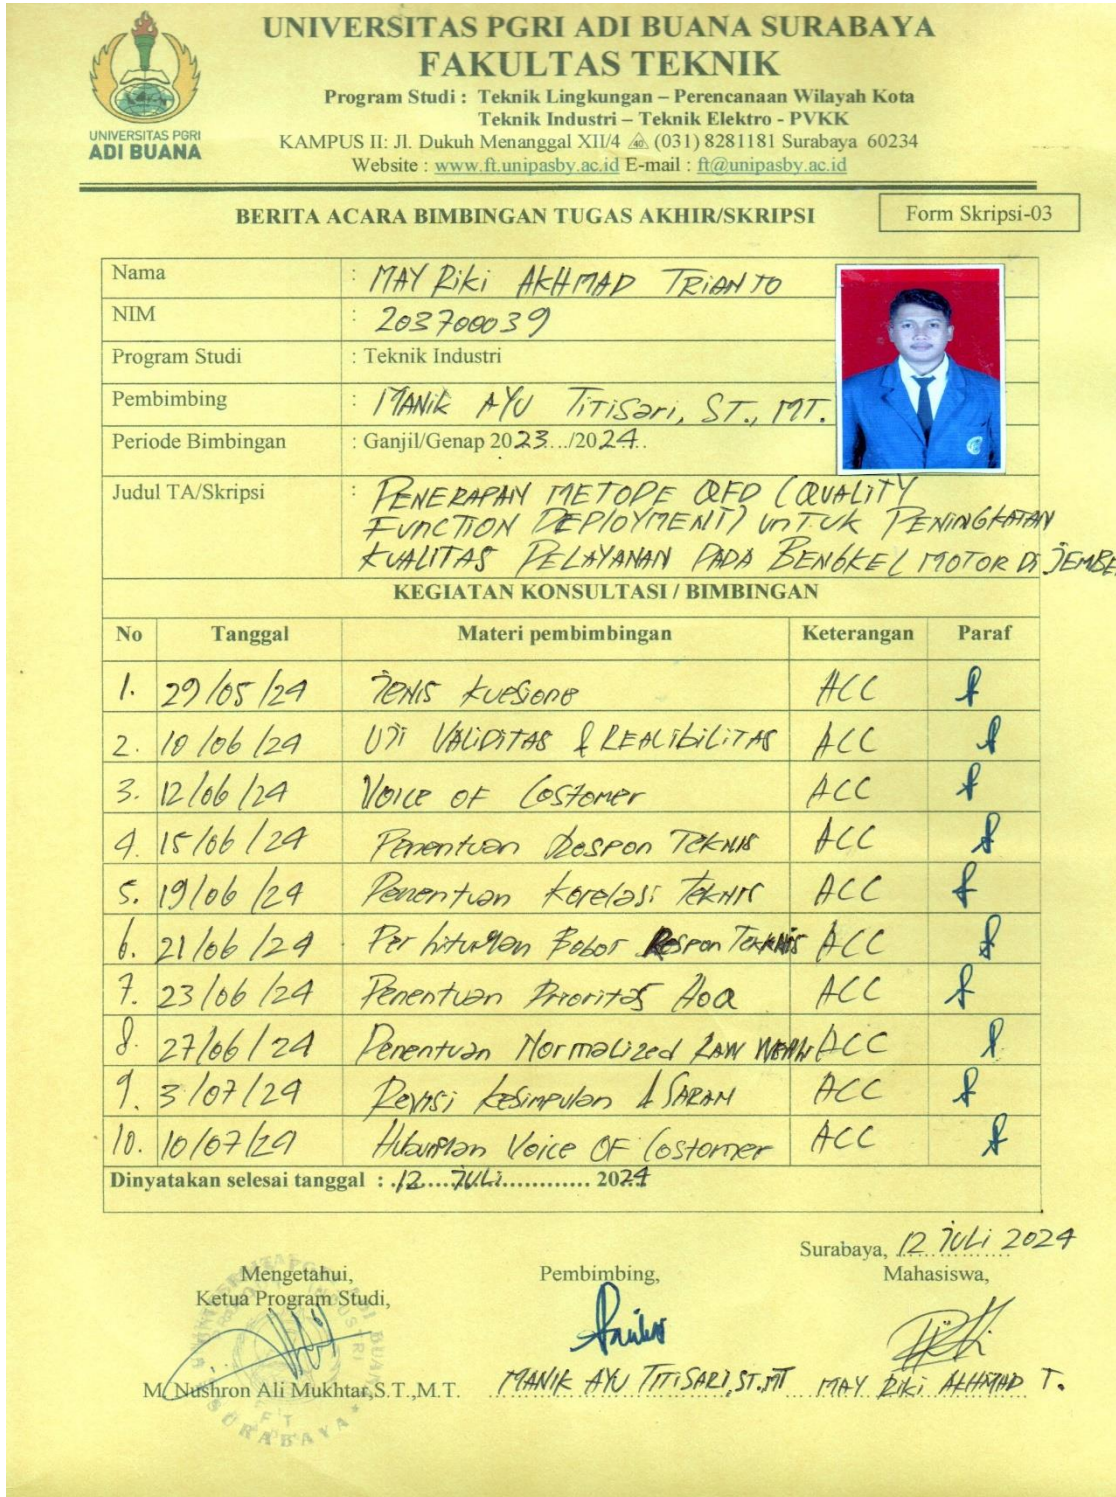 UNIVERSITAS PGRI ADI BUANA SURABAYA
FAKULTAS TEKNIK
Program Studi : Teknik Lingkungan – Perencanaan Wilayah Kota
Teknik Industri – Teknik Elektro - PVKK
KAMPUS II: Jl. Dukuh Menanggal XII/4 (031) 8281181 Surabaya 60234
Website : www.ft.unipasby.ac.id E-mail : ft@unipasby.ac.id
UNIVERSITAS PGRI
ADI BUANA
BERITA ACARA BIMBINGAN TUGAS AKHIR/SKRIPSI
Form Skripsi-03
Nama : MAY RiKi AKHMAD TRiANTO
NIM : 203700039
Program Studi : Teknik Industri
Pembimbing : MANiK AYU TiTiSari, ST., MT.
Periode Bimbingan : Ganjil/Genap 2023.../2024..
Judul TA/Skripsi : PENERAPAN METODE QFD (QUALiTY
FUNCTION DEPLOYMENT) UNTUK PENINGKATAN
KUALITAS PELAYANAN PADA BENGKEL MOTOR Di JEMBE
KEGIATAN KONSULTASI / BIMBINGAN
No Tanggal Materi pembimbingan Keterangan Paraf
1. 29/05/24 JENIS KUESiONE ACC
2. 10/06/24 UJI VALiDITAS & REALIBILITAS ACC
3. 12/06/24 VOICE OF COSTOMER ACC
4. 15/06/24 Penentuan Respon TEKNIS ACC
5. 19/06/24 Penentuan Korelasi TEKNIS ACC
6. 21/06/24 Perhitungan Bobot Respon Teknis ACC
7. 23/06/24 Penentuan Prioritas HOQ ACC
8. 27/06/24 Penentuan Normalized RAW ACC
9. 3/07/24 Revisi Kesimpulan & SARAN ACC
10. 10/07/24 Hubungan Voice OF Costomer ACC
Dinyatakan selesai tanggal : .12....JULi............ 2024
Surabaya, 12 JULi 2024
Mengetahui,
Ketua Program Studi,
Pembimbing,
Mahasiswa,
M. Nushron Ali Mukhtar,S.T.,M.T.
MANIK AYU TITISARI,ST.MT
MAY RIKi AKHMAD T.